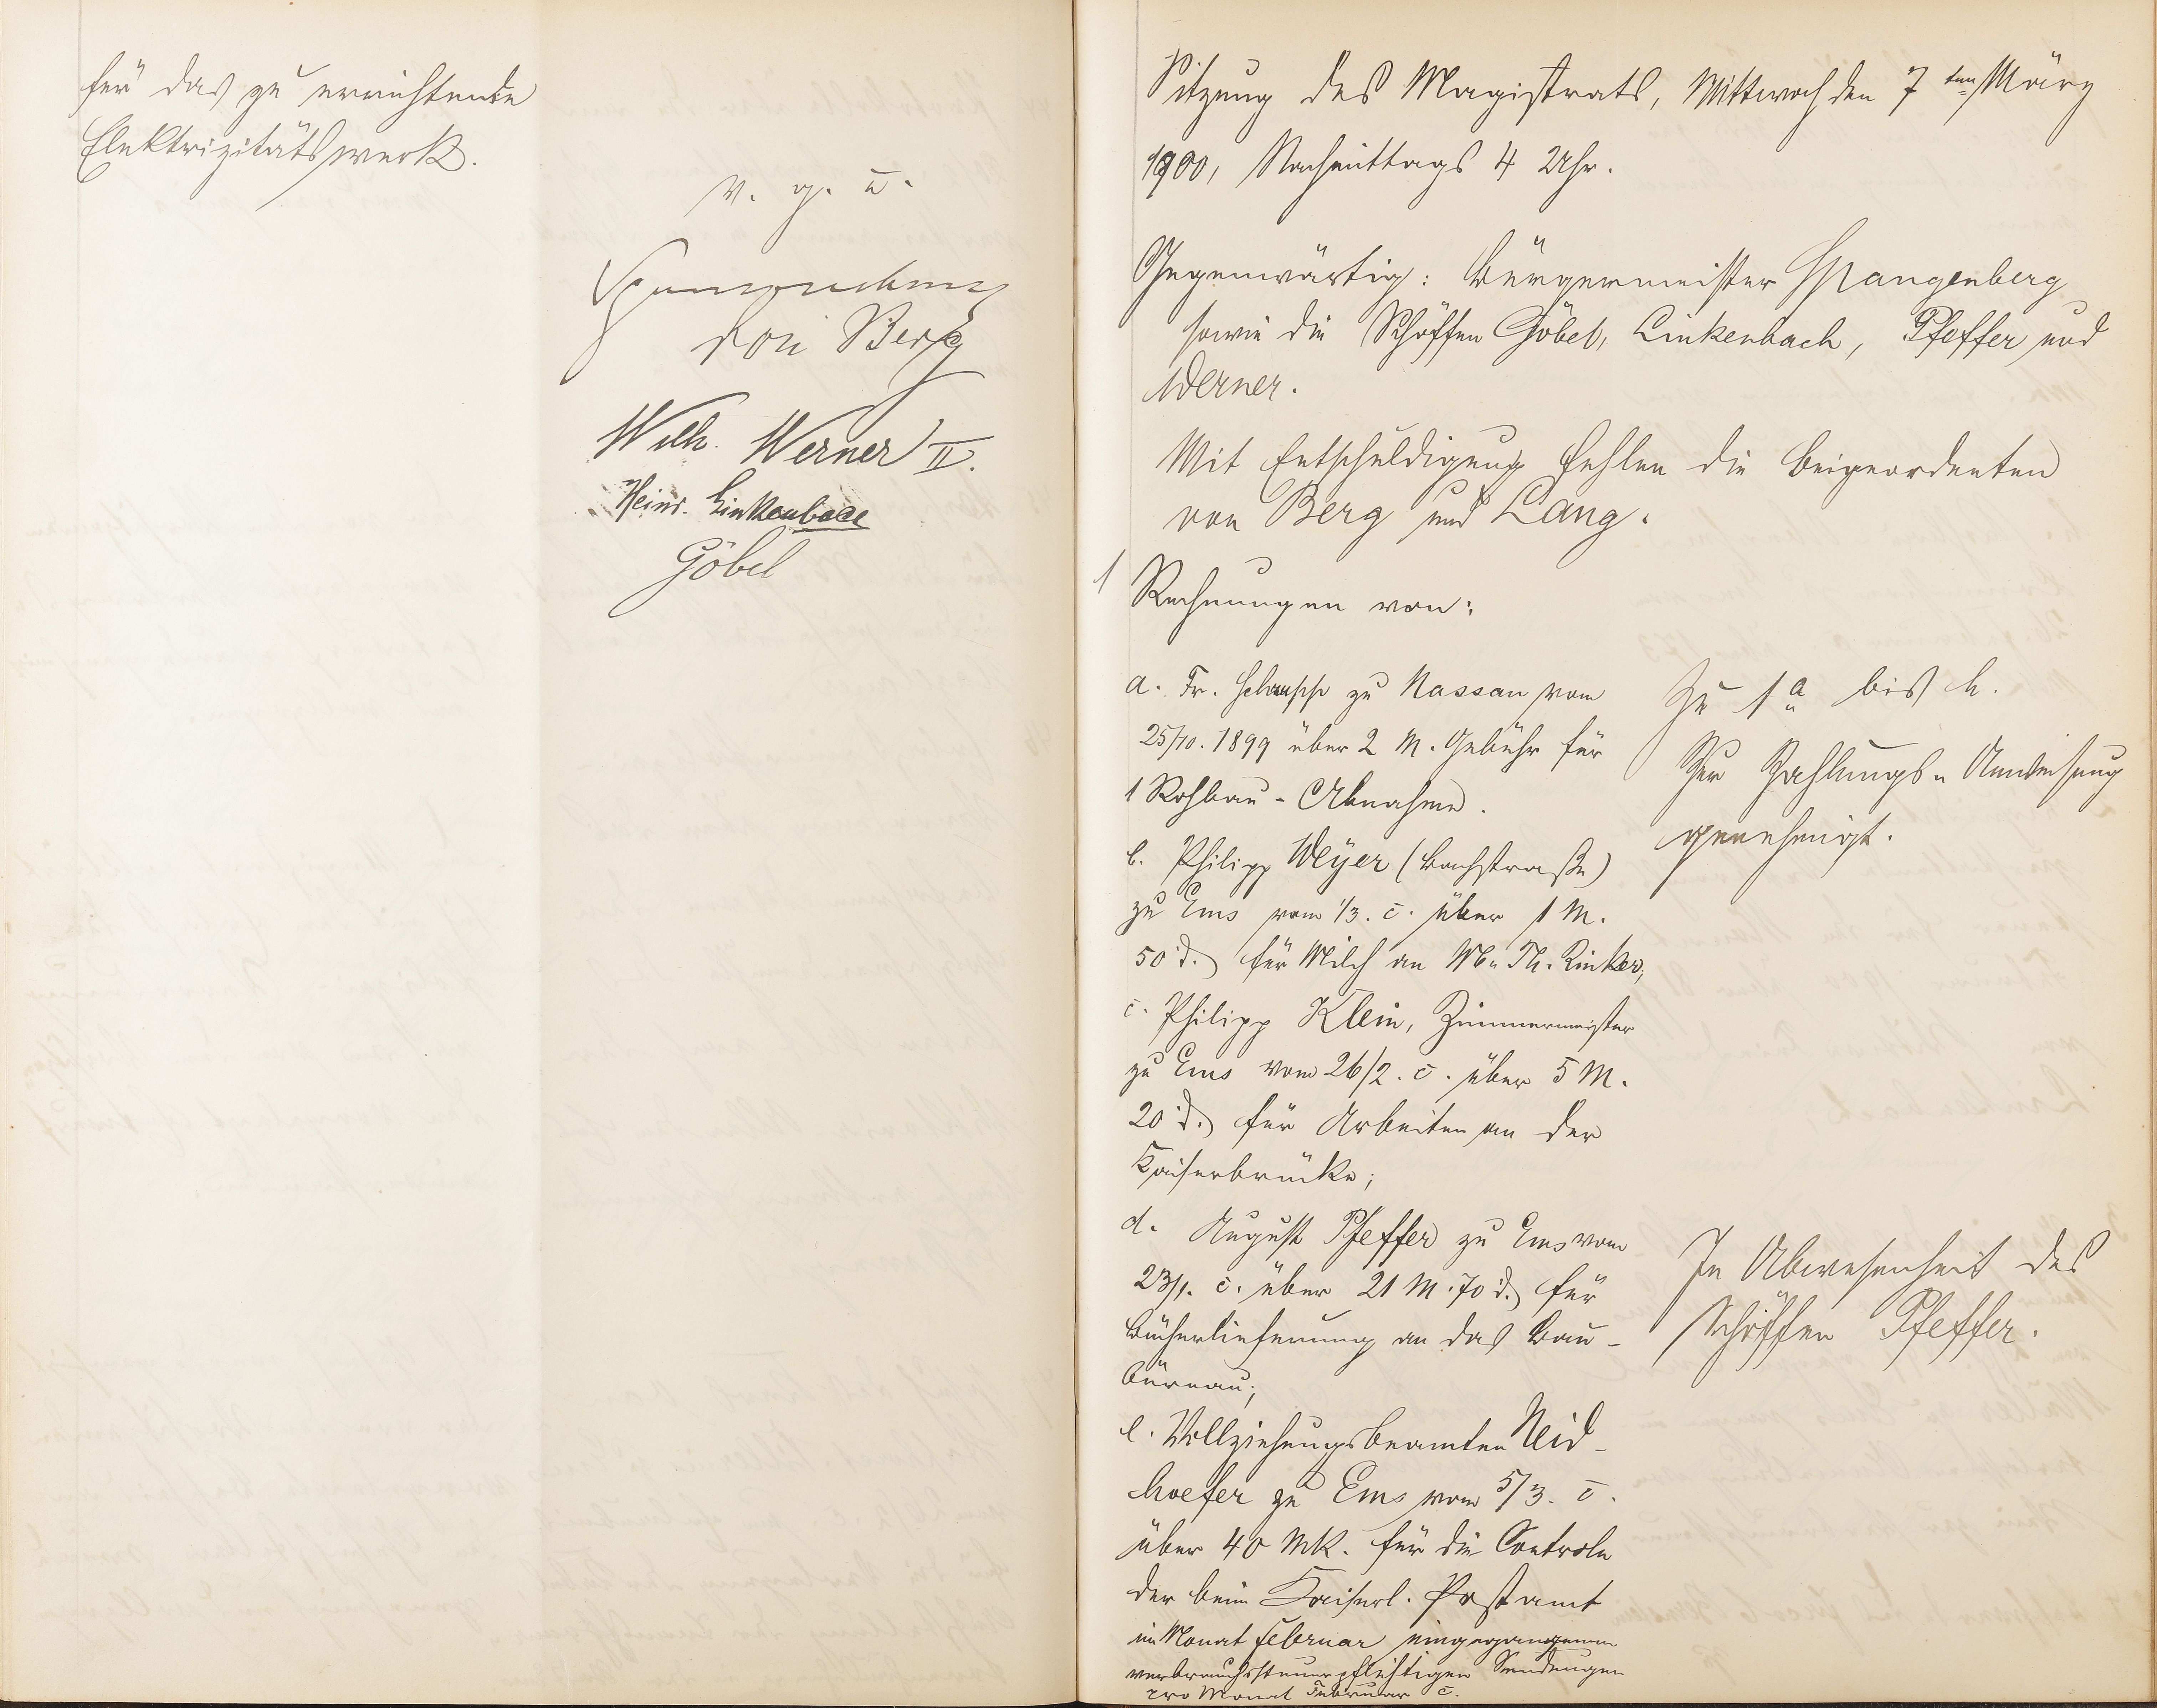 für das zu errichtende
Elektrizitätswerk.
v. g. u.
Spangenberg
von Berg
Wilh. Werner II.
Heinr. Linkenbach
Göbel
Sitzung des Magistrats, Mittwoch den 7ten März
1900, Nachmittags 4 Uhr.
Gegenwärtig: Bürgermeister Spangenberg
sowie die Schöffen Göbel, Linkenbach, Pfeffer und
Werner.
Mit Entschuldigung fehlen die Beigeordneten
von Berg und Lang.
1 Rechnungen von:
a. Fr. Schupp zu Nassau vom
25/10. 1899 über 2 M. Gebühr für
1 Rohbau-Abnahme.
b. Philipp Weyer (Bachstraße)
zu Ems vom 1/3. c. über 1 M.
50 d. für Milch an Ww. Th. Rinker,
c. Philipp Klein, Zimmermeister
zu Ems vom 26/2. c. über 5 M.
20 d. für Arbeiten an der
Kaiserbrücke;
d. August Pfeffer zu Ems vom
23/1. c. über 21 M. 70 d. für
Bücherlieferung an das Bau-
büreau;
e. Vollziehungsbeamten Neid-
hoefer zu Ems vom 5/3. c.
über 40 Mk. für die Controle
der beim Kaiserl. Postamt
im Monat Februar eingegangenen
verbrauchssteuerpflichtigen Sendungen
pro Monat Februar c.
Zu 1a bis h.
Zur Zahlungs-Anweisung
genehmigt.
In Abwesenheit des
Schöffen Pfeffer.